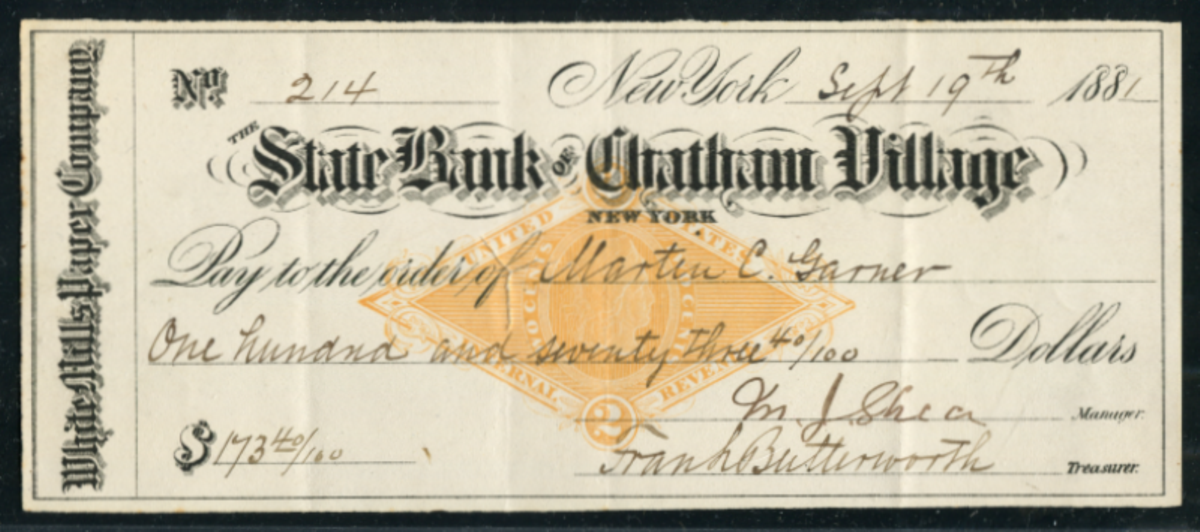 White Mills Paper Company,
No. 214 New York Sept 19th 1881
THE State Bank OF Chatham Village
NEW YORK.
UNITED STATES
Pay to the order of Martin C. Garner
One hundred and seventy three 40/100 Dollars
INTERNAL REVENUE
2
M. J. Shea Manager.
$173 40/100
Frank Butterworth Treasurer.